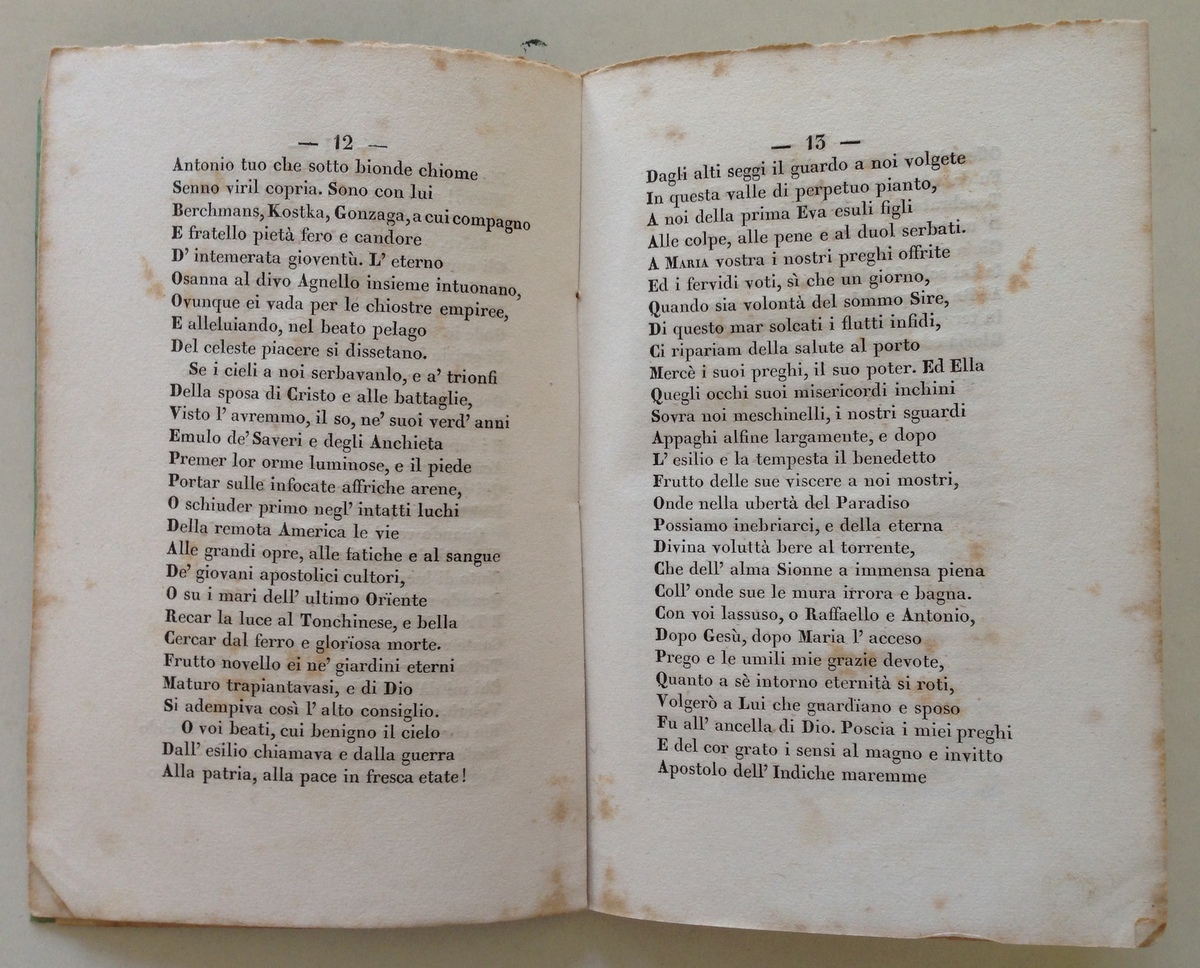 — 12 —
Antonio tuo che sotto bionde chiome
Senno viril copria. Sono con lui
Berchmans, Kostka, Gonzaga, a cui compagno
E fratello pietà fero e candore
D' intemerata gioventù. L' eterno
Osanna al divo Agnello insieme intuonano,
Ovunque ei vada per le chiostre empiree,
E alleluiando, nel beato pelago
Del celeste piacere si dissetano.
Se i cieli a noi serbavanlo, e a' trionfi
Della sposa di Cristo e alle battaglie,
Visto l' avremmo, il so, ne' suoi verd' anni
Emulo de' Saveri e degli Anchieta
Premer lor orme luminose, e il piede
Portar sulle infocate affriche arene,
O schiuder primo negl' intatti luchi
Della remota America le vie
Alle grandi opre, alle fatiche e al sangue
De' giovani apostolici cultori,
O su i mari dell' ultimo Oriente
Recar la luce al Tonchinese, e bella
Cercar dal ferro e glorïosa morte.
Frutto novello ei ne' giardini eterni
Maturo trapiantavasi, e di Dio
Si adempiva così l' alto consiglio.
O voi beati, cui benigno il cielo
Dall' esilio chiamava e dalla guerra
Alla patria, alla pace in fresca etate!
— 13 —
Dagli alti seggi il guardo a noi volgete
In questa valle di perpetuo pianto,
A noi della prima Eva esuli figli
Alle colpe, alle pene e al duol serbati.
A MARIA vostra i nostri preghi offrite
Ed i fervidi voti, sì che un giorno,
Quando sia volontà del sommo Sire,
Di questo mar solcati i flutti infidi,
Ci ripariam della salute al porto
Mercè i suoi preghi, il suo poter. Ed Ella
Quegli occhi suoi misericordi inchini
Sovra noi meschinelli, i nostri sguardi
Appaghi alfine largamente, e dopo
L' esilio e la tempesta il benedetto
Frutto delle sue viscere a noi mostri,
Onde nella ubertà del Paradiso
Possiamo inebriarci, e della eterna
Divina voluttà bere al torrente,
Che dell' alma Sionne a immensa piena
Coll' onde sue le mura irrora e bagna.
Con voi lassuso, o Raffaello e Antonio,
Dopo Gesù, dopo Maria l' acceso
Prego e le umili mie grazie devote,
Quanto a sè intorno eternità si roti,
Volgerò a Lui che guardïano e sposo
Fu all' ancella di Dio. Poscia i miei preghi
E del cor grato i sensi al magno e invitto
Apostolo dell' Indiche maremme